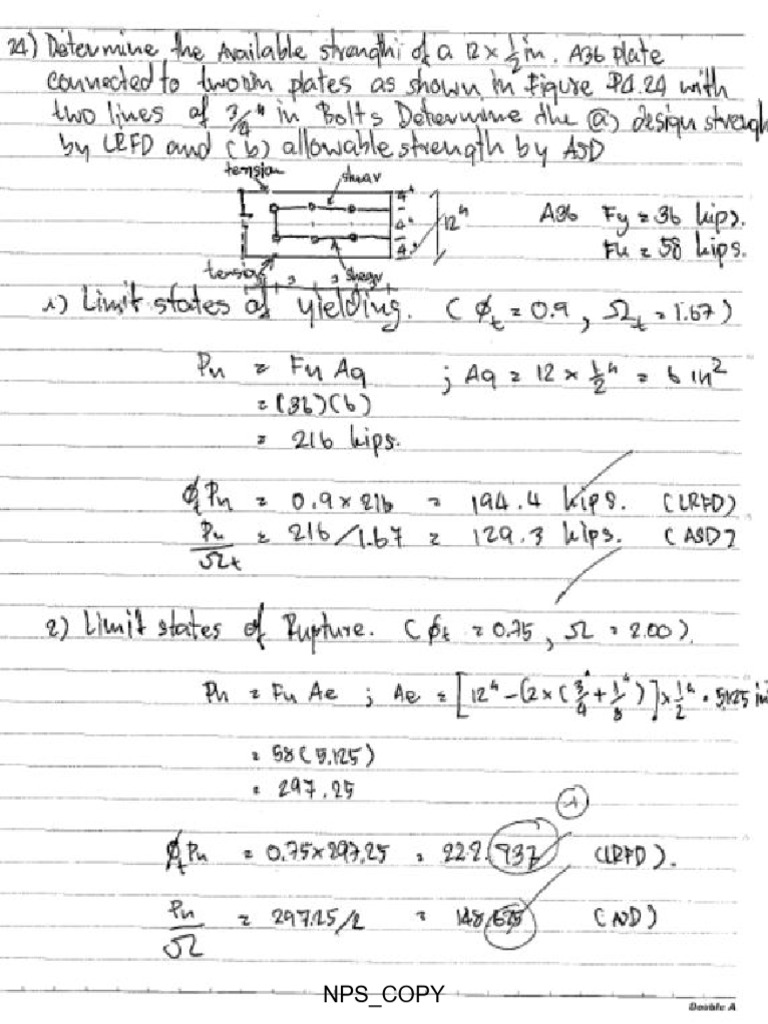 24) Determine the Available strength of a 12 x 1/2 in. A36 plate
connected to two 12 in plates as shown in Figure P4.24 with
two lines of 3/4" in Bolts Determine the (a) design strength
by LRFD and (b) allowable strength by ASD
tension
shear
4"
4"
4"
12"
A36 Fy = 36 kips.
Fu = 58 kips.
tension
3
3
shear
1) Limit states of yielding. (ϕt = 0.9, Ωt = 1.67)
Pn = Fy Ag ; Ag = 12 x 1/2" = 6 in²
= (36)(6)
= 216 kips.
ϕPn = 0.9 x 216 = 194.4 kips. (LRFD)
Pn/Ωt = 216/1.67 = 129.3 kips. (ASD)
2) Limit states of Rupture. (ϕt = 0.75, Ω = 2.00).
Pn = Fu Ae ; Ae = [12" - (2 x (3/4" + 1/8")] x 1/2" = 5.125 in
= 58(5.125)
= 297.25
-1
ϕtPn = 0.75 x 297.25 = 222.937 (LRFD).
Pn/Ω = 297.25/2 = 148.625 (ASD)
NPS_COPY
Double A